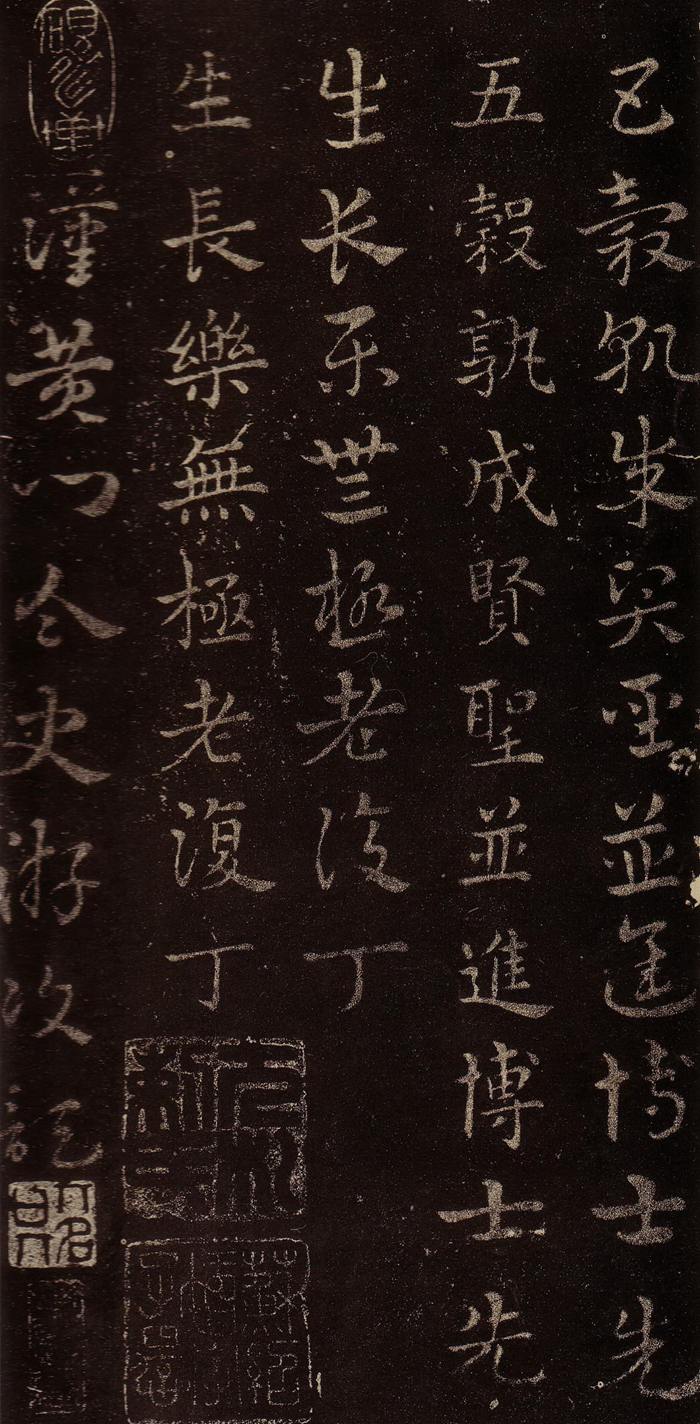 五穀孰成賢聖並進博士先
五穀孰成賢聖並進博士先
生長樂無極老復丁
生長樂無極老復丁
漢黃門令史游